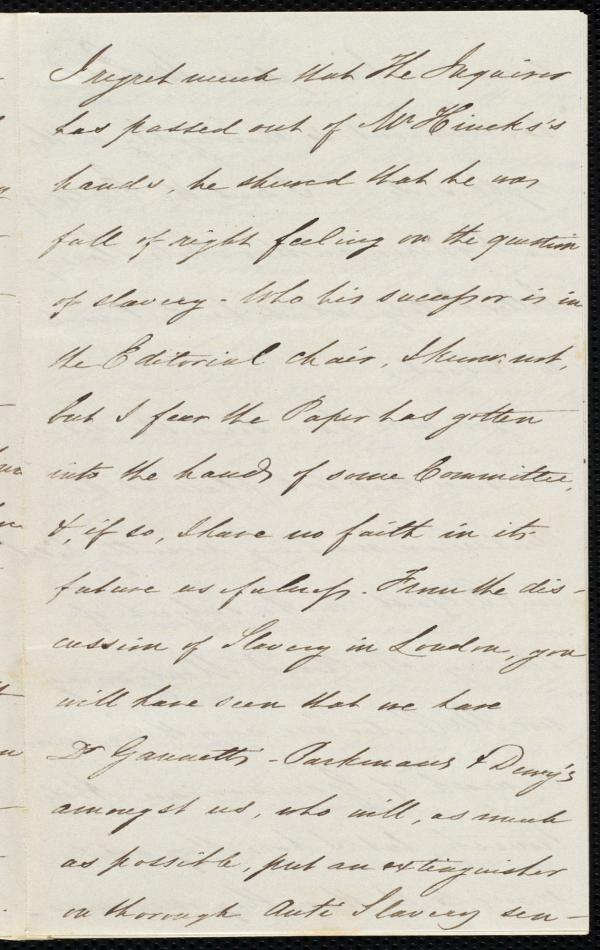 I regret much that The Inquirer
has passed out of Mr Hincks's
hands, he shewed that he was
full of right feeling on the question
of slavery - Who his successor is in
the Editorial chair, I know not,
but I fear the Paper has gotten
into the hands of some Committee,
&, if so, I have no faith in its
future usefulness. From the dis-
cussion of Slavery in London, you
will have seen that we have
Dr Gannetts - Parkmans & Dewy's
amongst us, who will, as much
as possible, put an extinguisher
on thorough Anti Slavery sen-